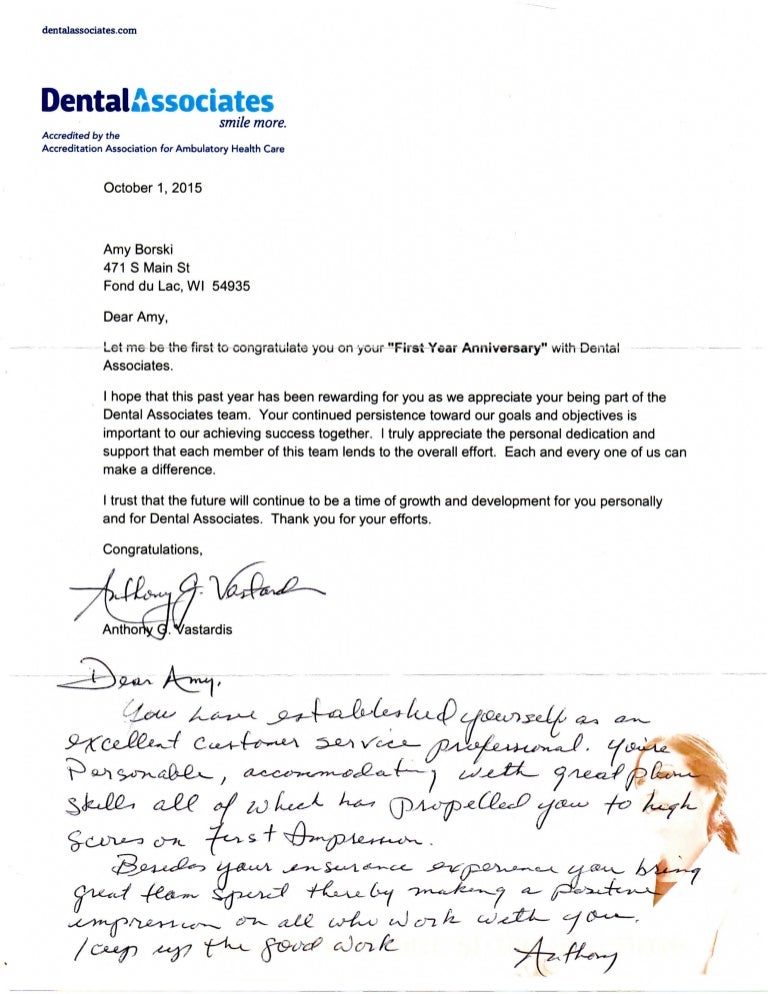 dentalassociates.com
DentalAssociates
smile more.
Accredited by the
Accreditation Association for Ambulatory Health Care
October 1, 2015
Amy Borski
471 S Main St
Fond du Lac, WI 54935
Dear Amy,
Let me be the first to congratulate you on your "First Year Anniversary" with Dental
Associates.
I hope that this past year has been rewarding for you as we appreciate your being part of the
Dental Associates team. Your continued persistence toward our goals and objectives is
important to our achieving success together. I truly appreciate the personal dedication and
support that each member of this team lends to the overall effort. Each and every one of us can
make a difference.
I trust that the future will continue to be a time of growth and development for you personally
and for Dental Associates. Thank you for your efforts.
Congratulations,
Anthony G. Vastardis
Anthony G. Vastardis
Dear Amy,
You have established yourself as an
excellent customer service professional. You're
Personable, accommodating with great phone
skills all of which has propelled you to high
scores on First Impression.
Besides your insurance experience you bring
great team spirit thereby making a positive
impression on all who work with you.
Keep up the good work
Anthony